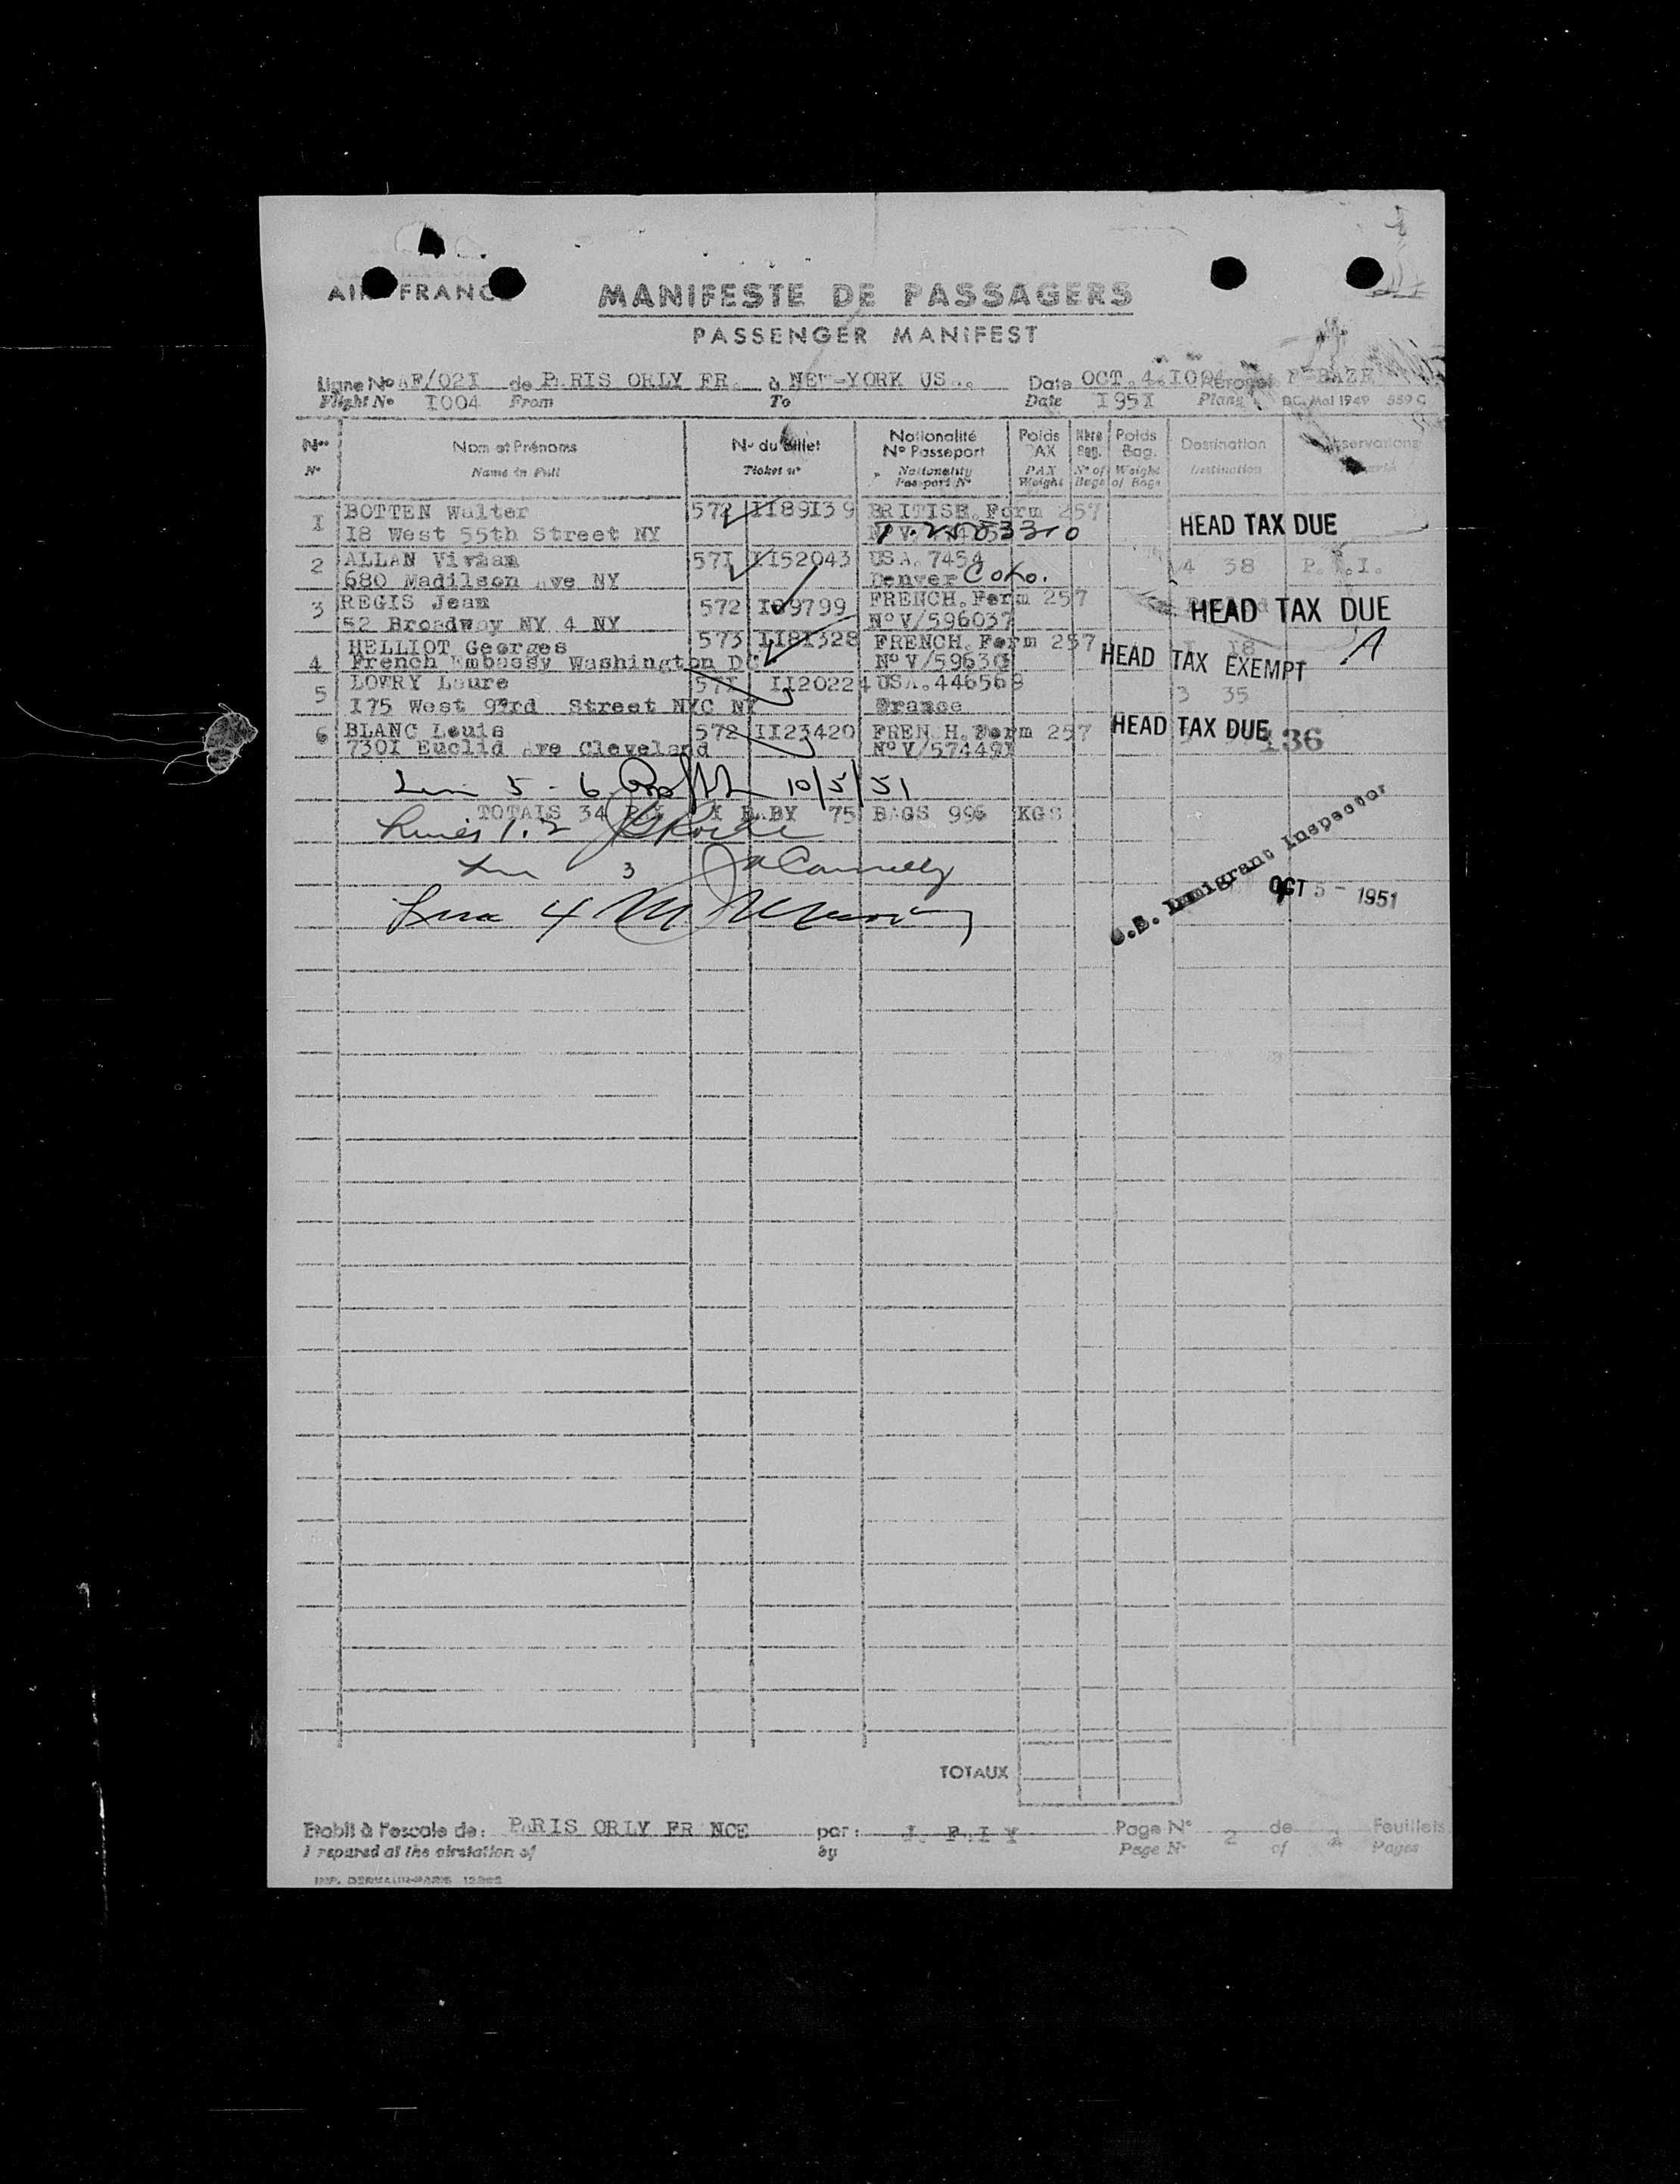 AIR FRANCE
MANIFESTE DE PASSAGERS
PASSENGER MANIFEST
Ligne No AF/02I de PARIS ORLY FR. à NEW-YORK US.. Date OCT.4.I004
Flight No I004 From To Date I95I Plane DC. Mai 1949 559 C
Nos Nom et Prénoms No du Billet Nationalité No Passeport Poids PAX Nbre Bag. Poids Bag. Destination Observations
No Name in Full Ticket no Nationality Passport No PAX Weight No of Bags Weight of Bags Destination
I BOTTEN Walter 572 II89I39 BRITISH. Form 257 HEAD TAX DUE
18 West 55th Street NY
2 ALLAN Vivian 57I II52043 USA. 7454 4 38 P. .I.
680 Madilson Ave NY Denver Colo.
3 REGIS Jean 572 I09799 FRENCH. Form 257 HEAD TAX DUE
52 Broadway NY 4 NY No V/596037
4 HELLIOT Georges 573 II8I328 FRENCH. Form 257 I 18 A
French Embassy Washington DC No V/59630 HEAD TAX EXEMPT
5 LOWRY Laure 57I II20224 USA. 446568 3 35
I75 West 93rd Street NYC NY France
6 BLANC Louis 572 II23420 FRENCH. Form 257 HEAD TAX DUE 136
730I Euclid Ave Cleveland No V/57449I
Line 5 - 6 10/5/51
TOTAIS 34 PAX I BABY 75 BAGS 996 KGS
Lines 1.2
Line 3 Connelly
Line 4
U.S. Immigrant Inspector
OCT 5 - 1951
TOTAUX
Etabli à l'escale de: PARIS ORLY FRANCE par: Page No 2 de 2 Feuillets
Prepared at the airstation of by Page No of Pages